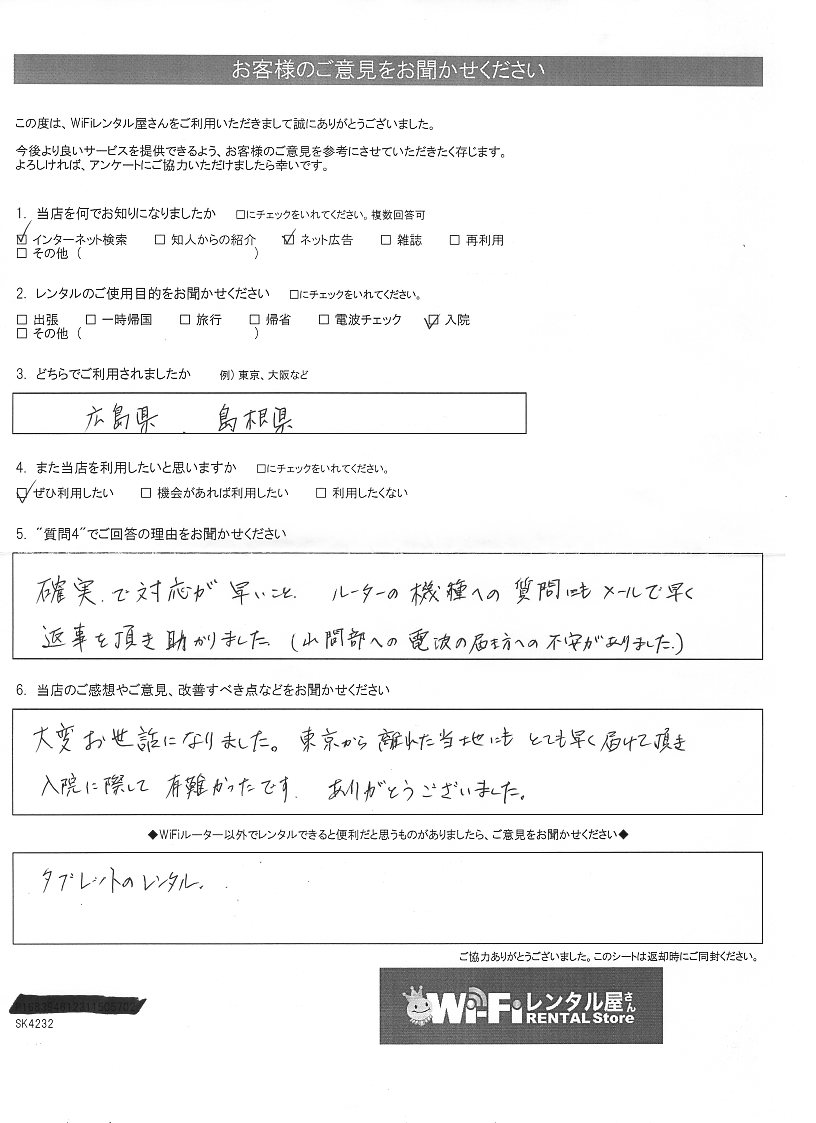 お客様のご意見をお聞かせください
この度は、WiFiレンタル屋さんをご利用いただきまして誠にありがとうございました。
今後より良いサービスを提供できるよう、お客様のご意見を参考にさせていただきたく存じます。
よろしければ、アンケートにご協力いただけましたら幸いです。
1. 当店を何でお知りになりましたか □にチェックをいれてください。複数回答可
☑ インターネット検索 □ 知人からの紹介 ☑ ネット広告 □ 雑誌 □ 再利用
□ その他 ( )
2. レンタルのご使用目的をお聞かせください □にチェックをいれてください。
□ 出張 □ 一時帰国 □ 旅行 □ 帰省 □ 電波チェック ☑ 入院
□ その他 ( )
3. どちらでご利用されましたか 例) 東京、大阪など
広島県、島根県
4. また当店を利用したいと思いますか □にチェックをいれてください。
☑ ぜひ利用したい □ 機会があれば利用したい □ 利用したくない
5. "質問4"でご回答の理由をお聞かせください
確実、で対応が早いこと、ルーターの機種への質問にもメールで早く
返事を頂き助かりました。(山間部への電波の届き方への不安がありました。)
6. 当店のご感想やご意見、改善すべき点などをお聞かせください
大変お世話になりました。東京から離れた当地にもとても早く届けて頂き
入院に際して有難かったです。ありがとうございました。
◆WiFiルーター以外でレンタルできると便利だと思うものがありましたら、ご意見をお聞かせください◆
タブレットのレンタル。
ご協力ありがとうございました。このシートは返却時にご同封ください。
SK4232
Wi-Fiレンタル屋さん
RENTAL Store